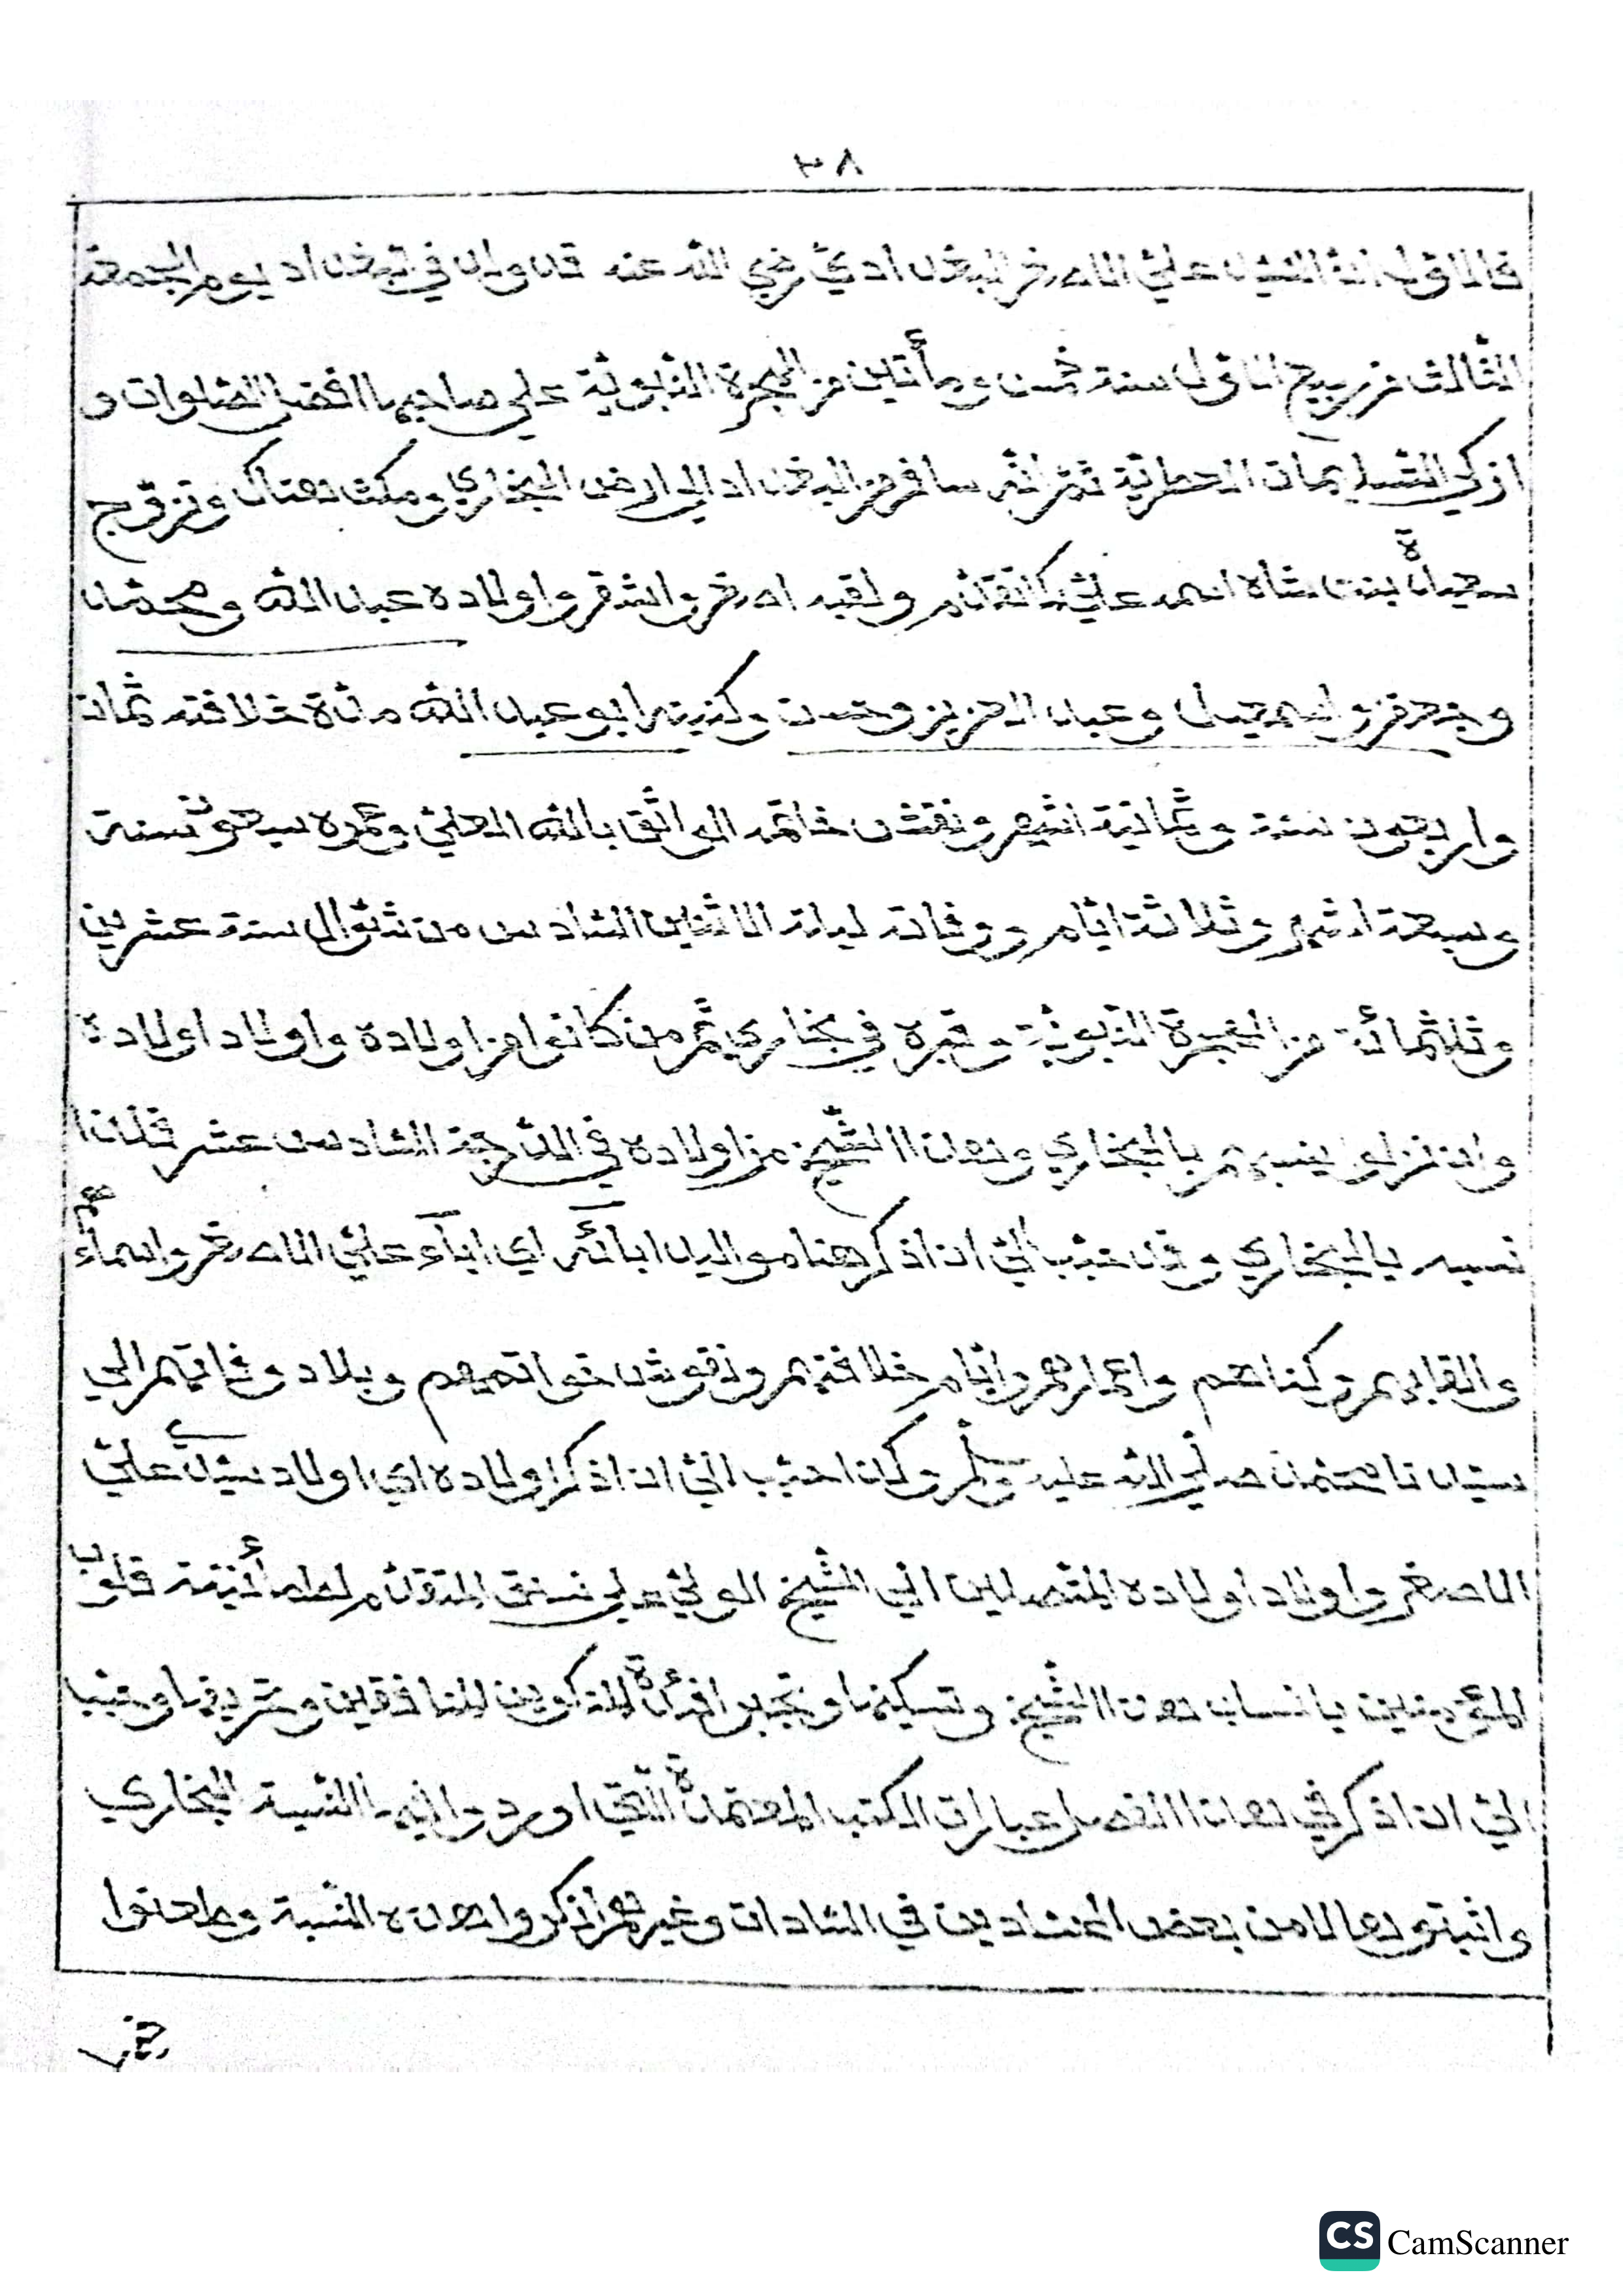 ٣٨
فالاول ان السيد علي الاصغر البغدادي رضي الله عنه قد ولد في بغداد يوم الجمعة
الثالث من ربيع الاول سنة خمس ومأتين من الهجرة النبوية على صاحبها افضل الصلوات و
ازكي التسليمات العطرية ثم انه سافر من البغداد الي ارض البخاري ومكث هناك وتزوج
سعيدة بنت شاه اسمه علي كالقائم ولقبه اصغر واشقر واولاده عبد الله ومحمد
وجعفر واسمعيل وعبد العزيز وحسن وكنيته ابو عبد الله مدة خلافته ثمان
واربعون سنة وثمانية اشهر ونقش خاتمه الواثق بالله العلي وعمره سبعون سنة
وسبعة اشهر وثلاثة ايام ووفاته ليلة الاثنين السادس من شوال سنة عشرين
وثلاثمائة من الهجرة النبوية وقبره في بخاري ثم من كانوا من اولاده واولاد اولاده
وان نزلوا ينسبهم بالبخاري وهذا الشيخ من اولاده في الدرجة السادس عشر فلذا
نسبه بالبخاري وقد حبب الي ان اذكر هنا مواليد ابائه اي اباء علي الاصغر واسمائهم
والقابهم وكناهم واعمارهم وايام خلافتهم ونقوش خواتمهم وبلاد وفاتهم الي
سيدنا محمد صلي الله عليه وسلم وكذا حبب الي ان اذكر اولاده اي اولاد سيدي علي
الاصغر واولاد اولاده المتصلين الي الشيخ الولي علي نسق المتقدم لطمأنينة قلوب
المؤمنين بانساب هذا الشيخ وتسكينها وتحيير افئدة المنكرين المنافقين وتحريقها وحبب
الي ان اذكر في هذا الفصل عبارات الكتب المعتمدة التي اوردوا فيها النسبة البخاري
واثبتوها لامن بعض الحسادين في السادات وغيرهم انكروا هذه النسبة وطعنوا
CS CamScanner